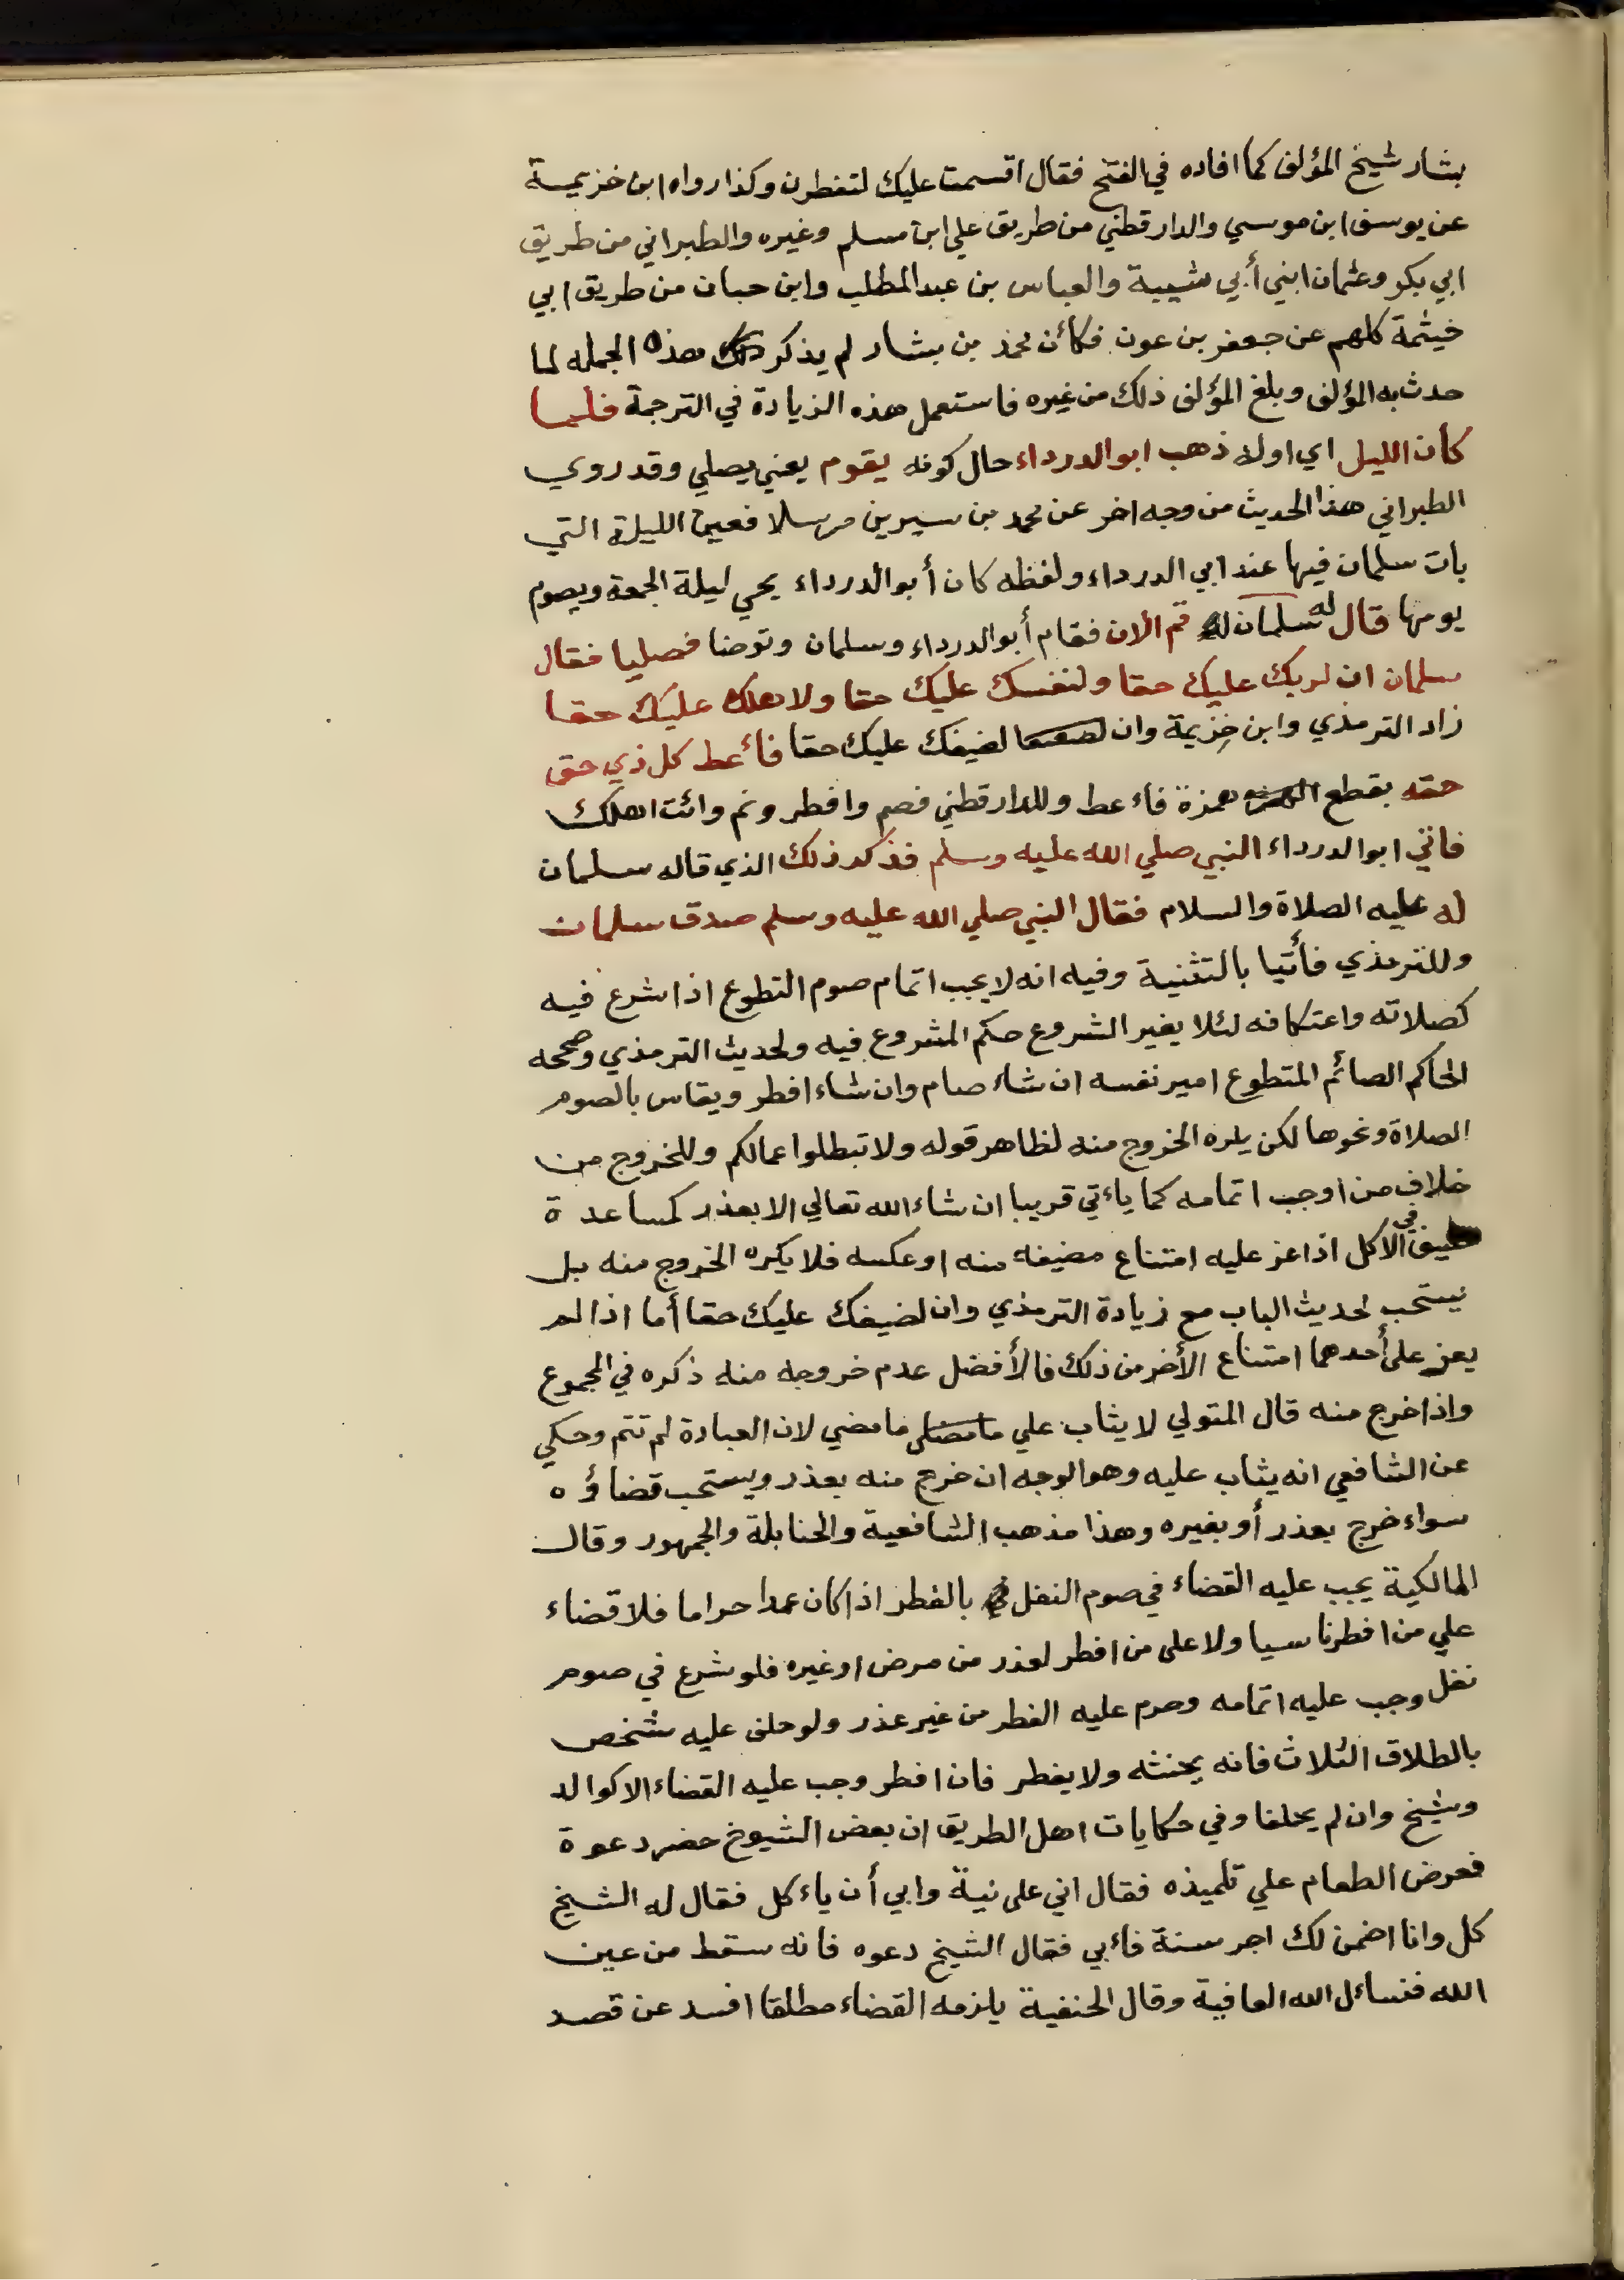 بشار شيخ المؤلف كما افاده في الفتح فقال اقسمت عليك لتفطرن وكذا رواه ابن خزيمة
عن يوسف ابن موسي والدارقطني من طريق علي ابن مسلم وغيره والطبراني من طريق
ابي بكر وعثمان ابني أبي شيبة والعباس بن عبد المطلب وابن حبان من طريق ابي
خيثمة كلهم عن جعفر بن عون فكأن محمد بن بشار لم يذكر هذه الجمله لما
حدث به المؤلف وبلغ المؤلف ذلك من غيره فاستعمل هذه الزيادة في الترجمة فلما
كان الليل اي اوله ذهب ابو الدرداء حال كونه يقوم يعني يصلي وقد روي
الطبراني هذا الحديث من وجه اخر عن محمد بن سيرين مرسلا فعين الليلة التي
بات سلمان فيها عند ابي الدرداء ولفظه كان أبو الدرداء يحي ليلة الجمعة ويصوم
يومها قال له سلمان قم الان فقام أبو الدرداء وسلمان وتوضا فصليا فقال
سلمان ان لربك عليك حقا ولنفسك عليك حقا ولاهلك عليك حقا
زاد الترمذي وابن خزيمة وان لضيفك عليك حقا فأعط كل ذي حق
حقه بقطع همزة فاءعط وللدارقطني فصم وافطر ونم وائت اهلك
فاتي ابو الدرداء النبي صلي الله عليه وسلم فذكر ذلك الذي قاله سلمان
له عليه الصلاة والسلام فقال النبي صلي الله عليه وسلم صدق سلمان
وللترمذي فأتيا بالتثنية وفيه انه لا يجب اتمام صوم التطوع اذا شرع فيه
كصلاته واعتكافه لئلا يغير الشروع حكم المشروع فيه ولحديث الترمذي وصححه
الحاكم الصائم المتطوع امير نفسه ان شاء صام وان شاء افطر ويقاس بالصوم
الصلاة ونحوها لكن يكره الخروج منه لظاهر قوله ولا تبطلوا اعمالكم وللخروج من
خلاف من اوجب اتمامه كما ياءتي قريبا ان شاء الله تعالي الا بعذر كمساعدة
ضيف في الاكل اذا عز عليه امتناع مضيفه منه او عكسه فلا يكره الخروج منه بل
يستحب لحديث الباب مع زيادة الترمذي وان لضيفك عليك حقا أما اذا لم
يعز على أحدهما امتناع الأخر من ذلك فالأفضل عدم خروجه منه ذكره في المجموع
واذا خرج منه قال المتولي لا يثاب علي ما مضي لان العبادة لم تتم وحكي
عن الشافعي انه يثاب عليه وهو الوجه ان خرج منه بعذر ويستحب قضاؤه
سواء خرج بعذر أو بغيره وهذا مذهب الشافعية والحنابلة والجمهور وقال
المالكية يجب عليه القضاء في صوم النفل بالفطر اذا كان عمدا حراما فلا قضاء
علي من افطر ناسيا ولا على من افطر لعذر من مرض او غيره فلو شرع في صوم
نفل وجب عليه اتمامه وحرم عليه الفطر من غير عذر ولو حلف عليه شخص
بالطلاق الثلاث فانه يحنثه ولا يفطر فان افطر وجب عليه القضاء الا كوالد
وشيخ وان لم يحلفا وفي حكايات اهل الطريق ان بعض الشيوخ حضر دعوة
فعرض الطعام علي تلميذه فقال اني على نية وابي أن ياءكل فقال له الشيخ
كل وانا اضمن لك اجر سنة فاءبي فقال الشيخ دعوه فانه سقط من عين
الله فنساءل الله العافية وقال الحنفية يلزمه القضاء مطلقا افسد عن قصد